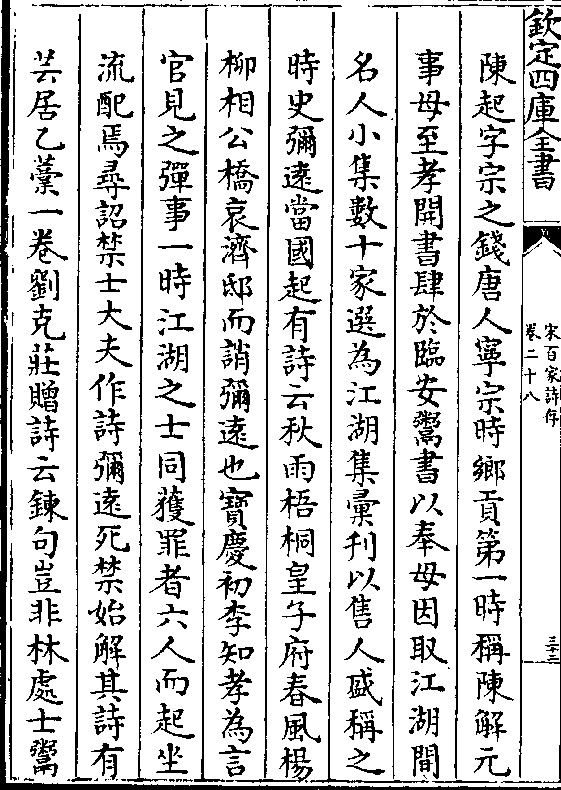 欽定四庫全書
宋百家詩存
卷二十八
三十二
陳起字宗之錢唐人寧宗時鄉貢第一時稱陳解元
事母至孝開書肆於臨安鬻書以奉母因取江湖間
名人小集數十家選為江湖集彙刊以售人盛稱之
時史彌遠當國起有詩云秋雨梧桐皇子府春風楊
柳相公橋哀濟邸而誚彌遠也寶慶初李知孝為言
官見之彈事一時江湖之士同獲罪者六人而起坐
流配焉尋詔禁士大夫作詩彌遠死禁始解其詩有
芸居乙藁一卷劉克莊贈詩云鍊句豈非林處士鬻